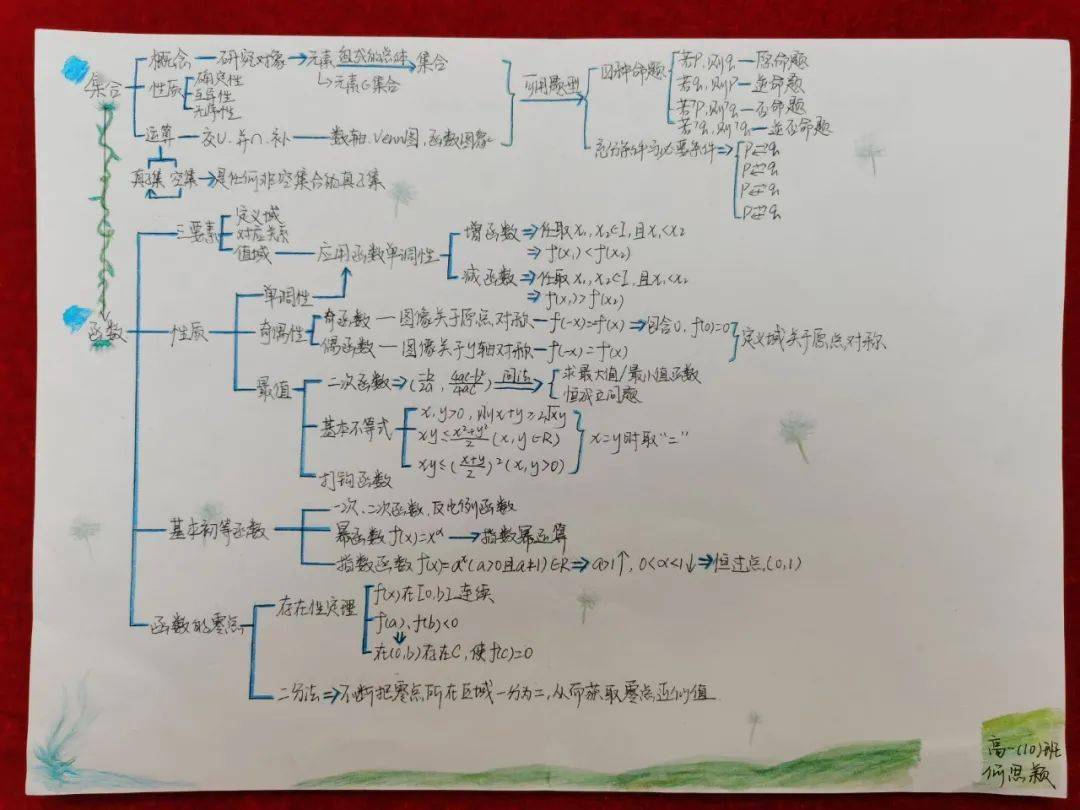 集合
概念—研究对象→元素 组成的总体→集合
↳元素∈集合
性质
确定性
互异性
无序性
运算—交∪.并∩.补—数轴.Venn图.函数图象
真子集 空集→是任何非空集合的真子集
可用题型
四种命题
若p,则q—原命题
若q,则p—逆命题
若?p,则?q—否命题
若?q,则?q—逆否命题
充分条件与必要条件⇒
函数
三要素
定义域
对应关系
值域—应用函数单调性
增函数⇒任取x₁,x₂∈I,且x₁<x₂
⇒f(x₁)<f(x₂)
减函数⇒任取x₁,x₂∈I,且x₁<x₂
⇒f(x₁)>f(x₂)
性质
单调性
奇偶性
奇函数—图像关于原点对称—f(-x)=f(x)⇒包含0,f(0)=0
偶函数—图像关于y轴对称—f(-x)=f(x)
定义域关于原点对称
最值
二次函数⇒(-b/2a, 4ac-b²/4ac)
求最大值/最小值函数
恒成立问题
基本不等式
x,y>0,则x+y≥2√xy
xy≤x²+y²/2(x,y∈R)
xy≤(x+y/2)²(x,y>0)
x=y时取“=”
打钩函数
基本初等函数
一次、二次函数,反比例函数
幂函数f(x)=xᵅ→指数幂运算
指数函数f(x)=aˣ(a>0且a≠1)∈R⇒a>1↑,0<a<1↓⇒恒过点(0,1)
函数的零点
存在性定理
f(x)在[a,b]连续
f(a)、f(b)<0
在(a,b)存在C,使f(c)=0
二分法⇒不断把零点所在区域一分为二,从而获取零点近似值
高一(10)班
何思颖